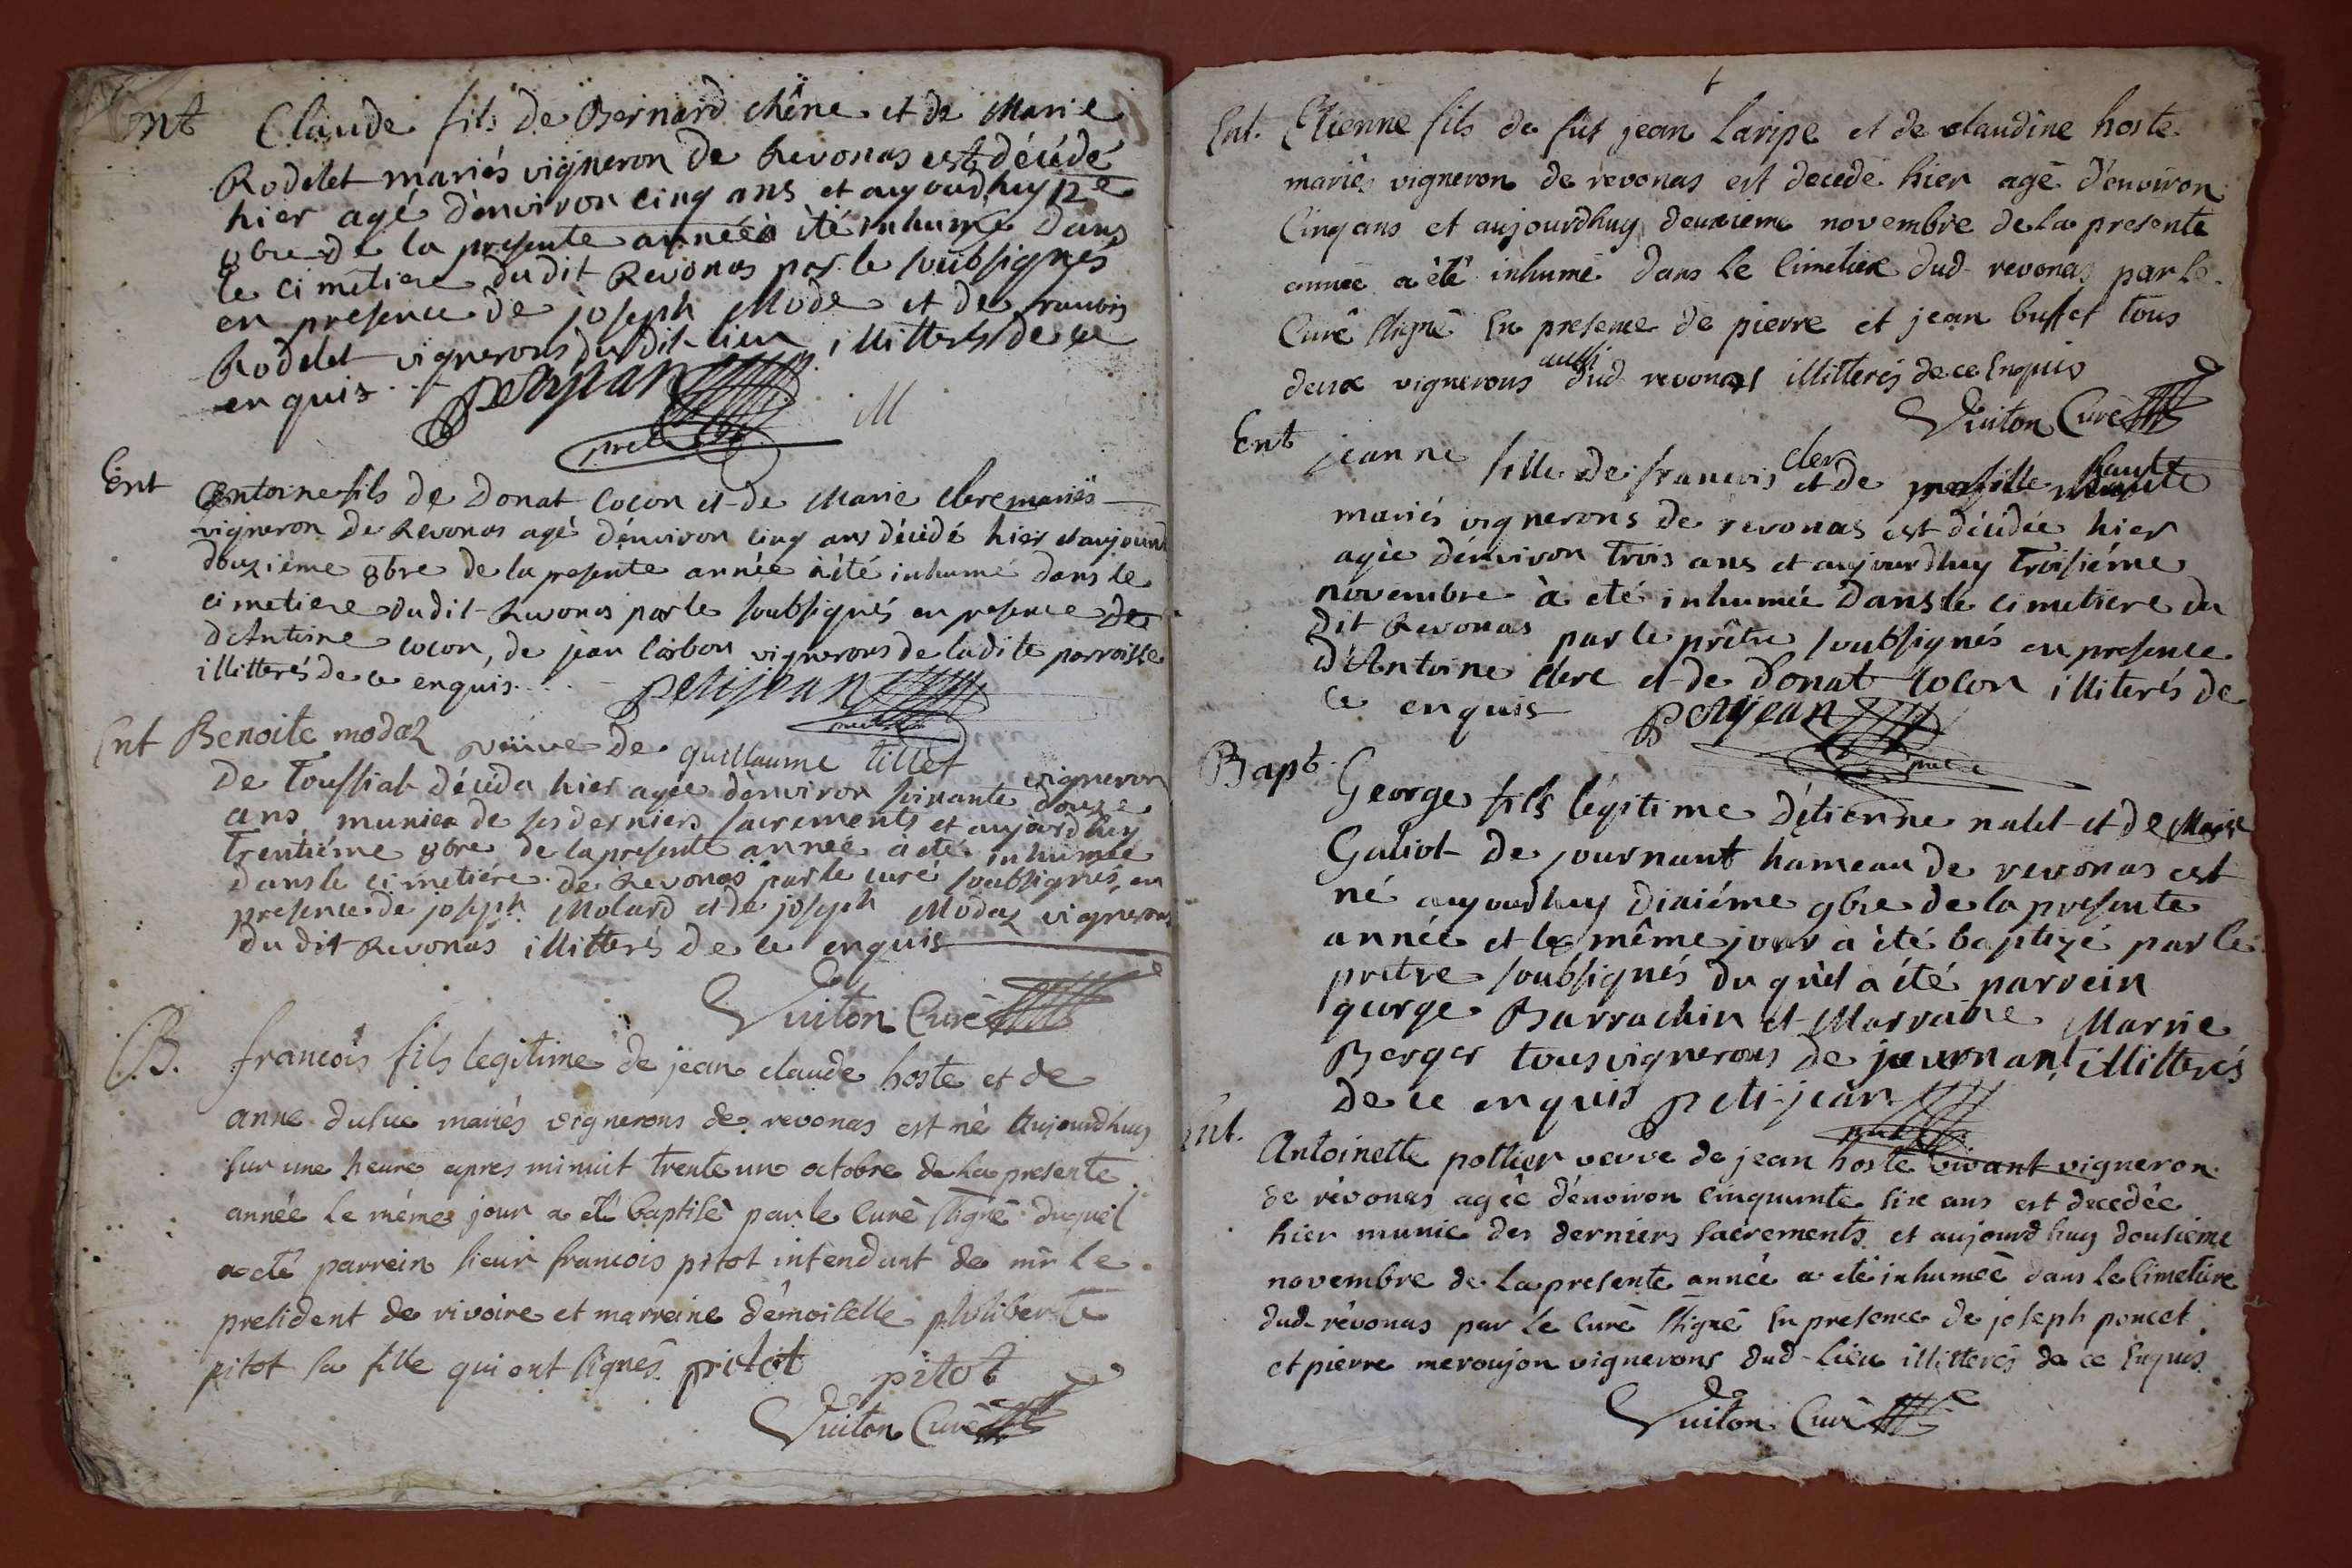 Ent Claude fils de Bernard chêne et de Marie
Rodelet mariés vigneron de Revonas est décédé
hier agé d'environ cinq ans et aujourdhuy 12e
8bre de la presente année à été inhumé dans
le cimetiere dudit Revonas par le soubsignés
en presence de joseph Mode et de francois
Rodelet vignerons du dit lieu illitterés de ce
enquis petitjean
M
prêtre
Ent Antoine fils de Donat cocon et de Marie clere mariés
vigneron de Revonas agé d'environ cinq ans décédé hier et aujourd
douzième 8bre de la presente année à été inhumé dans le
cimetiere dudit Revonas par le soubsignés en presence de
d'Antoine cocon, de jean Carbon vignerons de ladite parroisse
illitterés de ce enquis petitjean
prêtre
Ent Benoite modaz veuve de guillaume tillet vigneron
de Toussiat décéda hier agée d'environ soixante douze
ans munie de ses derniers sacrements et aujourdhuy
trentiéme 8bre de la presente année à été inhumée
dans le cimetiére de Revonas par le curé soubsignés en
presence de joseph Molard et de joseph Modaz vignerons
du dit Revonas illitterés de ce enquis
Vuiton Curé
B. francois fils legitime de jean claude hoste et de
anne duluc mariés vignerons de revonas est né aujourdhuy
sur une heure apres minuit trente un octobre de la presente
année le méme jour a été baptisé par le curé ssigné duquel
a eté parrein sieur francois pitot intendant de mr le
president de rivoire et marreine démoiselle philiberte
pitot sa fille qui ont signés pitot pitot
Vuiton Curé
Ent. Etienne fils de fut jean Laripe et de claudine hoste
mariés vigneron de revonas est decedé hier agé d'environ
Cinq ans et aujourdhuy deuxieme novembre de la presente
année a été inhumé dans le Cimetiere dud revonas par le
Curé ssigné En presence de pierre et jean buffet tous
deux vignerons aussi dud revonas illitterés de ce Enquis
Vuiton Curé
Ent jeanne fille de francois clere et de haute
mariés vignerons de revonas est décédée hier
agée d'environ trois ans et aujourdhuy troisiéme
novembre à eté inhumée dans le cimetiere du
dit Revonas par le prêtre soubsignés en presence
d'Antoine clere et de Donat cocon illiterés de
ce enquis petitjean
prêtre
Bapt. George fils légitime d'étienne nalet et de Marie
Galiot de journant hameau de revonas est
né aujourdhuy dixiéme 9bre de la presente
année et le même jour à été baptizé par le
prêtre soubsignés du quel à été parrein
george Barrachin et Marraine Marie
Berger tous vignerons de journant illitterés
de ce enquis peti-jean
prêtre
Ent. Antoinette pottier veuve de jean hoste vivant vigneron
de révonas agée d'énviron Cinquante six ans est decedée
hier munie des derniers sacrements et aujourdhuy dousieme
novembre de la presente année a eté inhumeé dans le Cimetiere
dud révonas par le curé ssigné En presence de joseph poncet
et pierre meroujon vignerons dud Lieu illitterés de ce Enquis
Vuiton Curé